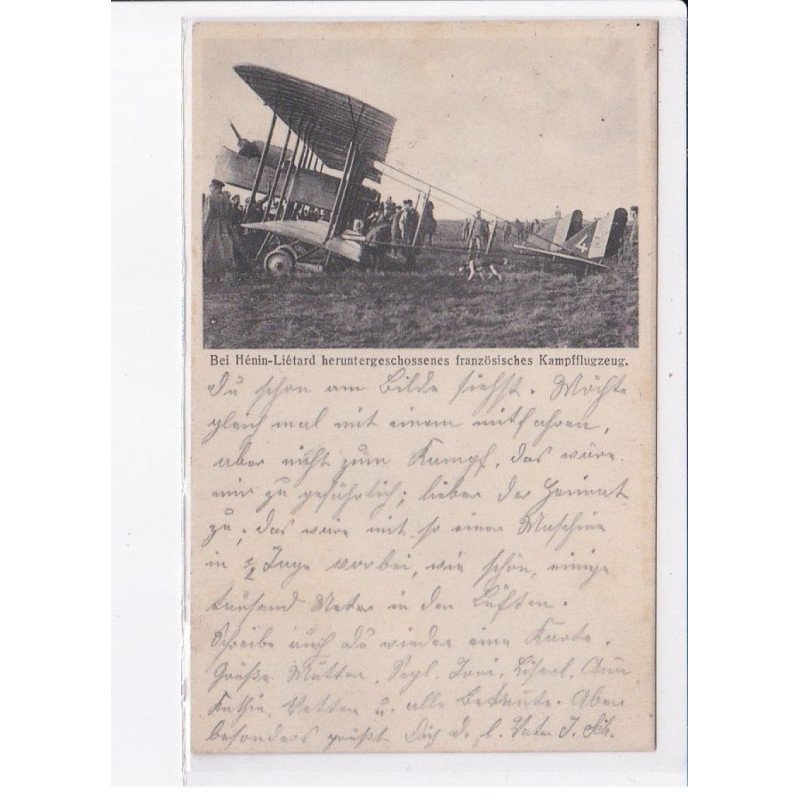 4
Bei Hénin-Liétard heruntergeschossenes französisches Kampfflugzeug.
Du schon am Bilde siehst. Möchte
gleich mal mit einem mitfahren,
aber nicht zum Kampf, das wäre
mir zu gefährlich; lieber der Heimat
zu, das wäre mit so einer Maschine
in ½ Tage vorbei, wie schön, einige
tausend Meter in den Lüften.
Schreibe auch Du wieder eine Karte.
Grüße Mutter, Sepl, Toni, Liserl,
Kathie, Vetter u. alle Bekannte. Aber
besonders grüßt Dich d. l. Vater J. Sch.